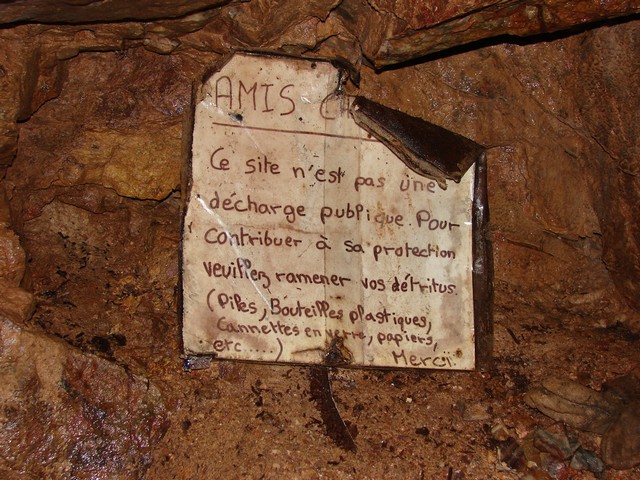 AMIS
Ce site n'est pas une
décharge publique. Pour
contribuer à sa protection
veuillez ramener vos détritus.
(Piles, Bouteilles plastiques,
Cannettes en verre, papiers,
etc.....)
Merci.